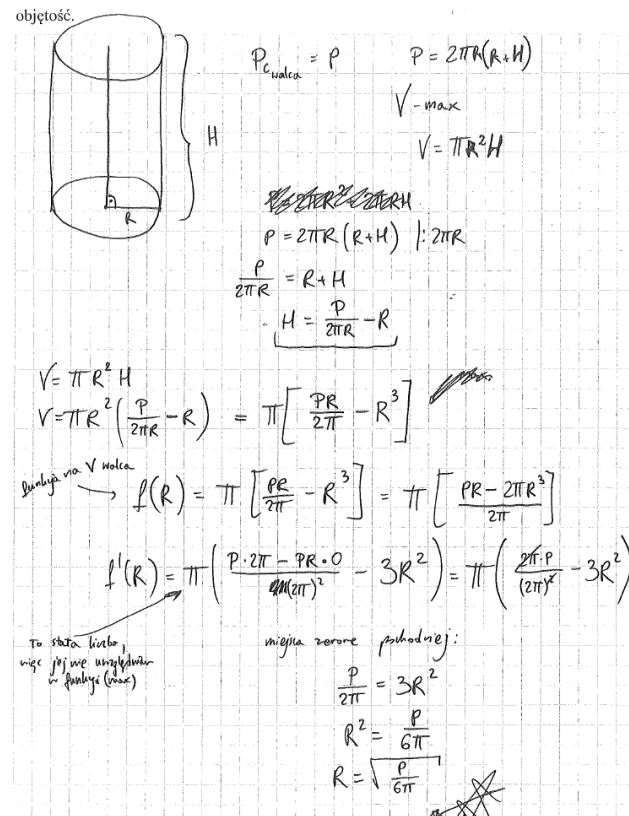 objętość.
P_c walca = P    P = 2πR(R+H)
V - max
V = πR²H
H
R
P = 2πR (R+H) |: 2πR
P/2πR = R+H
H = P/2πR - R
V = πR² H
V = πR² (P/2πR - R) = π[PR/2π - R³]
funkcja na V walca
f(R) = π[PR/2π - R³] = π[(PR - 2πR³)/2π]
f'(R) = π((P·2π - PR·0)/(2π)² - 3R²) = π(2π·P/(2π)² - 3R²)
To stała liczba,
więc jej nie uwzględniam
w funkcji (max)
miejsca zerowe pochodnej:
P/2π = 3R²
R² = P/6π
R = √(P/6π)